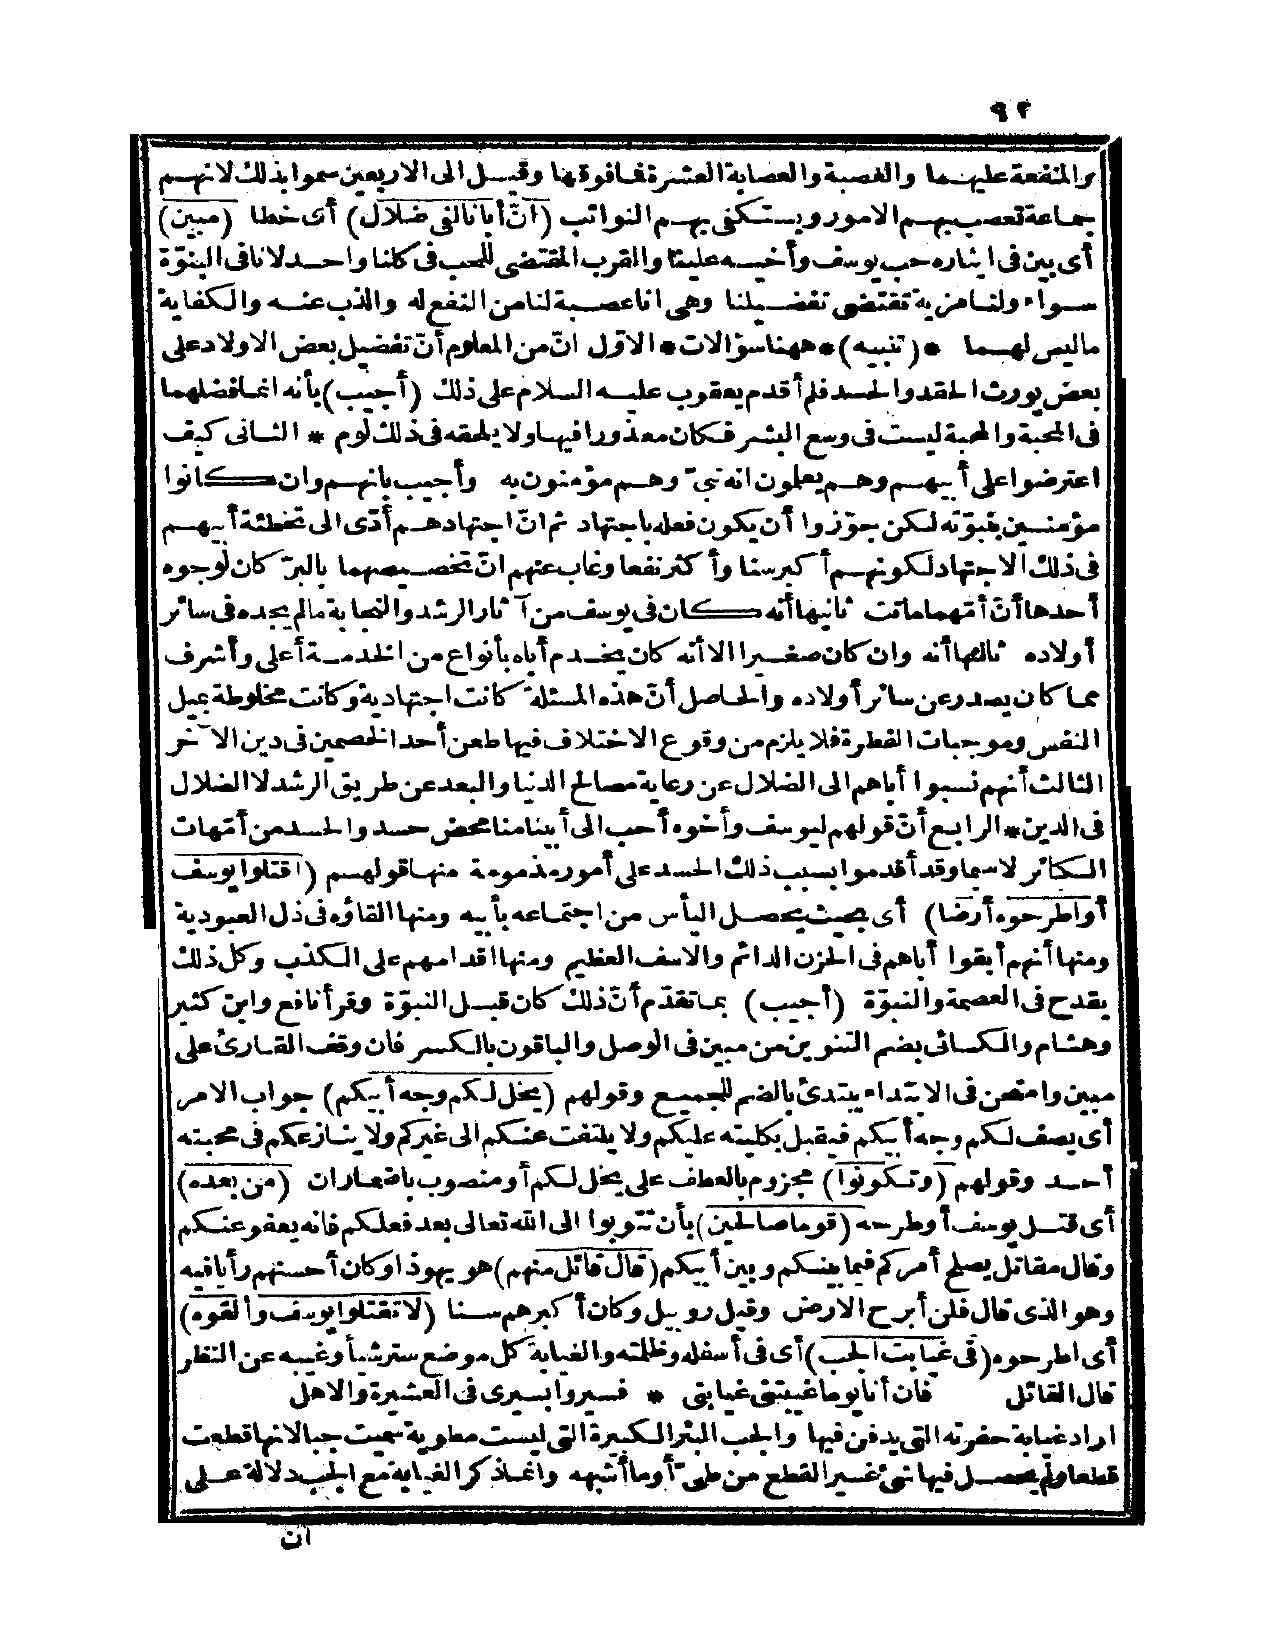 ٩٢
والمنفعة عليهما والعصبة والعصابة العشرة فما فوقها وقيل الى الاربعين سموا بذلك لانهم
جماعة تعصب بهم الامور ويستكفى بهم النوائب (انّ أبانا لفى ضلال) أى خطا (مبين)
أى بين فى ايثاره حب يوسف وأخيه علينا والقرب المقتضى للحب فى كلنا واحد لانا فى البنوّة
سواء ولنا مزية تقتضى تفضيلنا وهى انا عصبة لنا من النفع له والذب عنه والكفاية
ما ليس لهما * (تنبيه) * ههنا سؤالات * الاوّل انّ من المعلوم أنّ تفضيل بعض الاولاد على
بعض يورث الحقد والحسد فلم أقدم يعقوب عليه السلام على ذلك (أجيب) بأنه انما فضلهما
فى المحبة والمحبة ليست فى وسع البشر فكان معذورا فيها ولا يلحقه فى ذلك لوم * الثانى كيف
اعترضوا على أبيهم وهم يعلمون انه نبىّ وهم مؤمنون به وأجيب بانهم وان كانوا
مؤمنين بنبوّته لكن جوّزوا أن يكون فعله باجتهاد ثم انّ اجتهادهم أدّى الى تخطئة أبيهم
فى ذلك الاجتهاد لكونهم أكبر سنا وأكثر نفعا وغاب عنهم انّ تخصيصهما بالبرّ كان لوجوه
أحدها أنّ أمّهما ماتت ثانيها أنه كان فى يوسف من آثار الرشد والنجابة ما لم يجده فى سائر
أولاده ثالثها أنه وان كان صغيرا الا أنه كان يخدم أباه بأنواع من الخدمة أعلى وأشرف
مما كان يصدر عن سائر أولاده والحاصل أنّ هذه المسئلة كانت اجتهادية وكانت مخلوطة بميل
النفس وموجبات الفطرة فلا يلزم من وقوع الاختلاف فيها طعن أحد الخصمين فى دين الآخر
الثالث أنهم نسبوا أباهم الى الضلال عن رعاية مصالح الدنيا والبعد عن طريق الرشد لا الضلال
فى الدين * الرابع أنّ قولهم ليوسف وأخوه أحب الى أبينا منا محض حسد والحسد من أمّهات
الكبائر لا سيما وقد أقدموا بسبب ذلك الحسد على أمور مذمومة منها قولهم (اقتلوا يوسف
أو اطرحوه أرضا) أى بحيث يحصل اليأس من اجتماعه بأبيه ومنها القاؤه فى ذل العبودية
ومنها أنهم أبقوا أباهم فى الحزن الدائم والاسف العظيم ومنها اقدامهم على الكذب وكل ذلك
يقدح فى العصمة والنبوّة (أجيب) بما تقدّم أنّ ذلك كان قبل النبوّة وقرأ نافع وابن كثير
وهشام والكسائى بضم التنوين من مبين فى الوصل والباقون بالكسر فان وقف القارئ على
مبين وامتحن فى الابتداء يبتدئ بالضم للجميع وقولهم (يخل لكم وجه أبيكم) جواب الامر
أى يصف لكم وجه أبيكم فيقبل بكليته عليكم ولا يلتفت عنكم الى غيركم ولا ينازعكم فى محبته
أحد وقولهم (وتكونوا) مجزوم بالعطف على يخل لكم أو منصوب باضماران (من بعده)
أى قتل يوسف أو طرحه (قوما صالحين) بأن تتوبوا الى الله تعالى بعد فعلكم فانه يعفو عنكم
وقال مقاتل يصلح أمركم فيما بينكم وبين أبيكم (قال قائل منهم) هو يهوذا وكان أحسنهم رأيا فيه
وهو الذى قال فلن أبرح الارض وقيل روبيل وكان أكبرهم سنا (لا تقتلوا يوسف وألقوه)
أى اطرحوه (فى غيابت الجب) أى فى أسفله وظلمته والغيابة كل موضع ستر شيأ وغيبه عن النظر
قال القائل فان أنا يوما غيبتنى غيابتى * فسيروا بسيرى فى العشيرة والاهل
اراد غيابة حفرته التى يدفن فيها والجب البئر الكبيرة التى ليست مطوية سميت جبا لانها قطعت
قطعا ولم يحصل فيها شىء غير القطع من طىّ أو ما أشبهه وانما ذكر الغيابة مع الجب دلالة على
ان